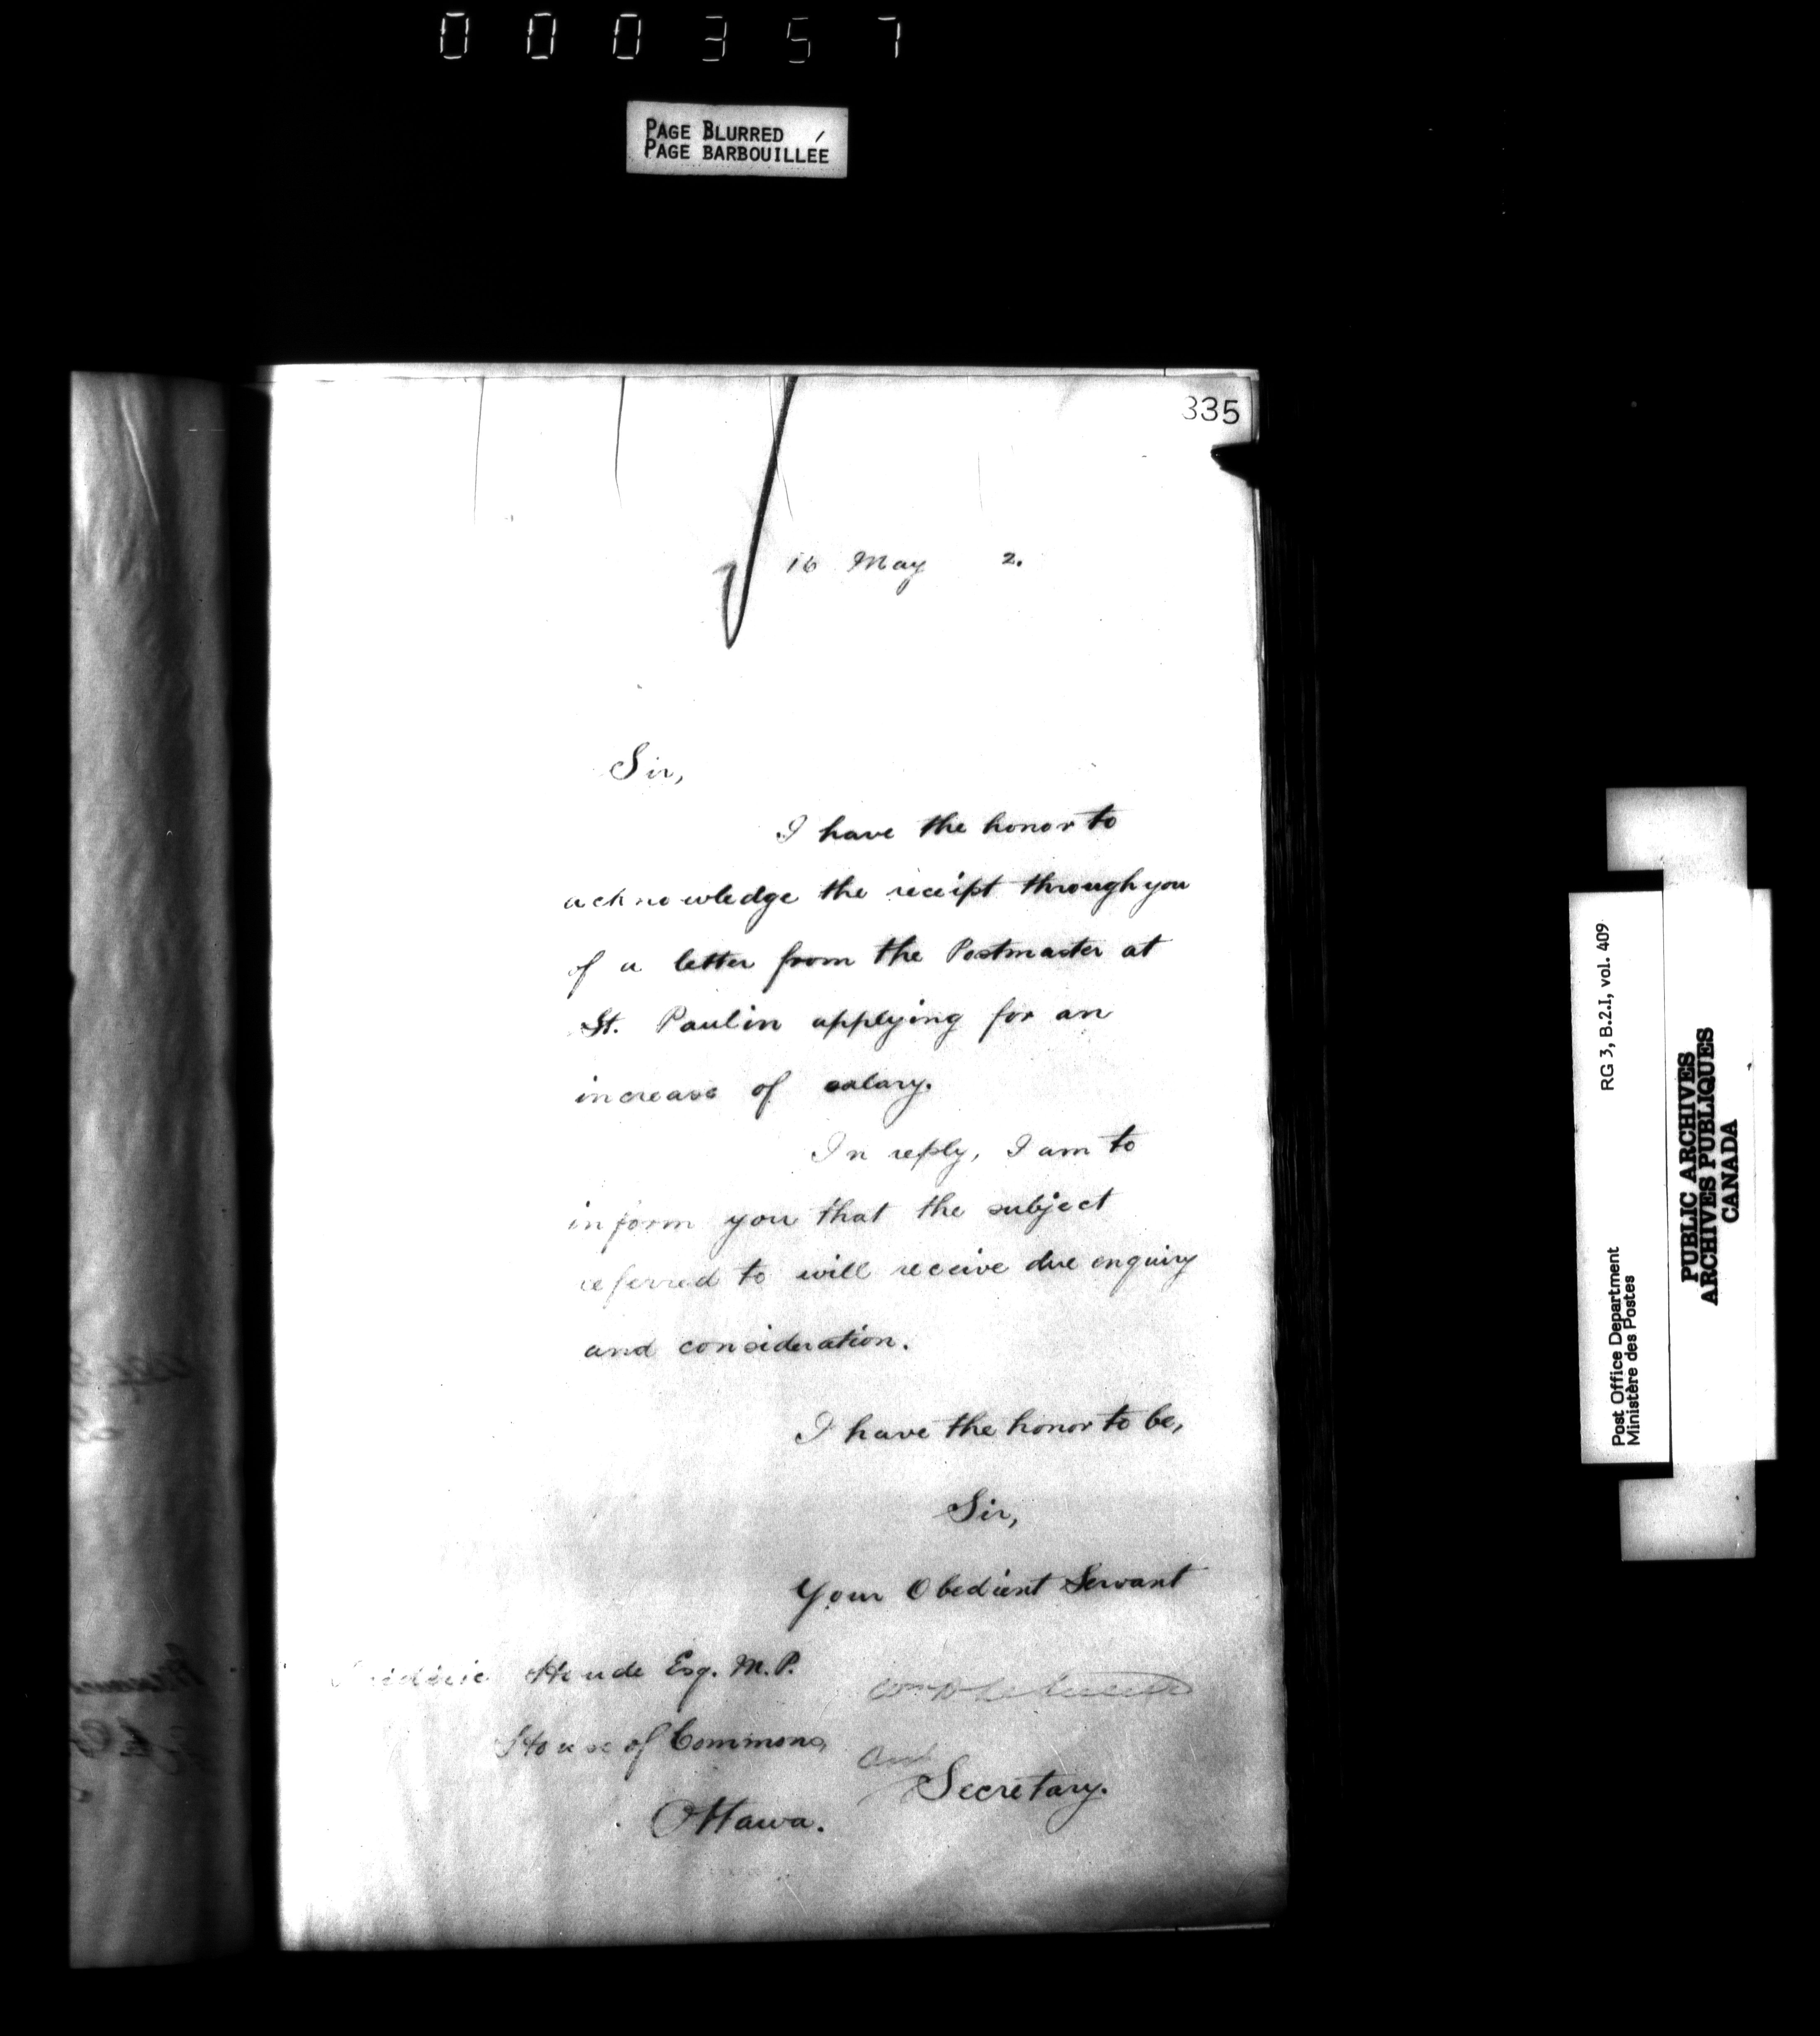 000357
PAGE BLURRED
PAGE BARBOUILLÉE
335
16 May 2.
Sir,
I have the honor to
acknowledge the receipt through you
of a letter from the Postmaster at
St. Paulin applying for an
increase of salary.
In reply, I am to
inform you that the subject
referred to will receive due enquiry
and consideration.
I have the honor to be,
Sir,
Your Obedient Servant
Houde Esq. M.P.
House of Commons,
Secretary.
Ottawa.
RG 3, B.2.I, vol. 409
Post Office Department
Ministère des Postes
PUBLIC ARCHIVES
ARCHIVES PUBLIQUES
CANADA